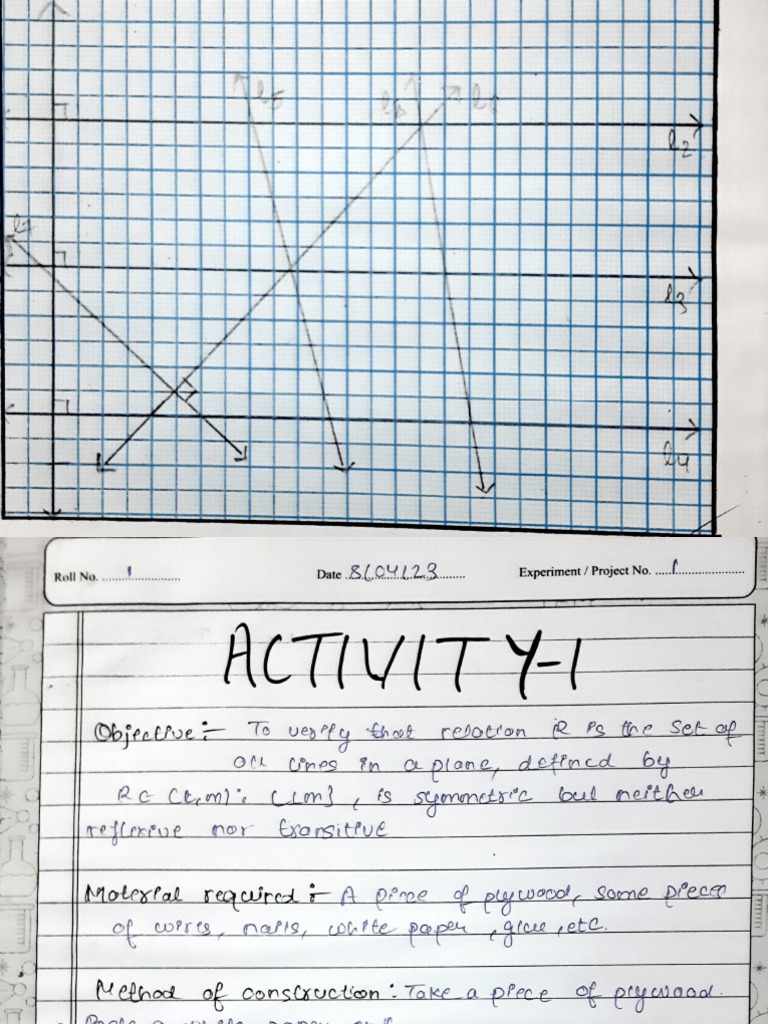 l6
l8
l5
l2
l7
l3
l4
Roll No. 1
Date 8/04/23
Experiment / Project No. 1
ACTIVITY-1
Objective:- To verify that relation R is the set of
all lines in a plane, defined by
R = {(l,m): l⊥m}, is symmetric but neither
reflexive nor transitive
Material required:- A piece of plywood, some piece
of wires, nails, white paper, glue, etc.
Method of construction: Take a piece of plywood.
white paper